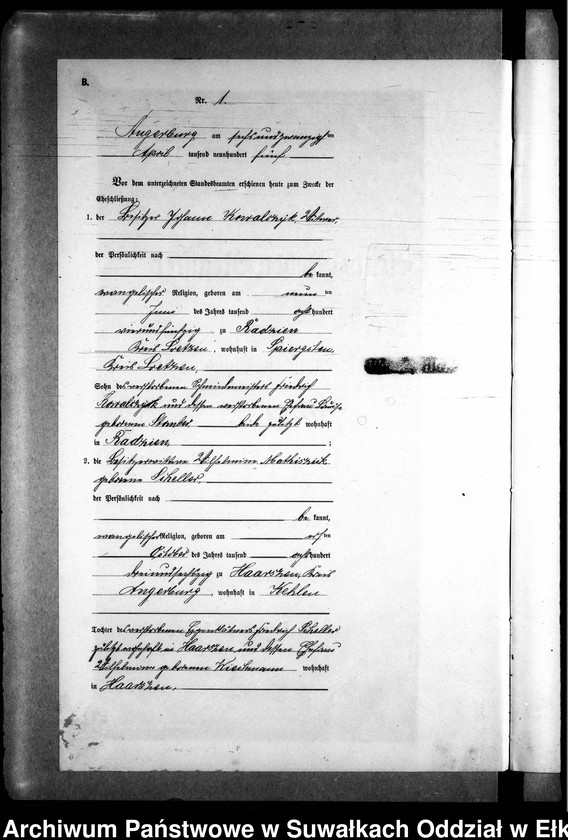 B.
Nr. 1.
Angerburg am sechsundzwanzigsten
April tausend neunhundert fünf
Vor dem unterzeichneten Standesbeamten erschienen heute zum Zwecke der
Eheschließung:
1. der Besitzer Johann Kowalczyk, Witwer,
der Persönlichkeit nach
be kannt,
evangelischer Religion, geboren am neunten
Juni des Jahres tausend achthundert
vierundfünfzig zu Radzien
Kreis Loetzen, wohnhaft in Spiergsten,
Kreis Loetzen,
Sohn des verstorbenen Schmiedemeisters Friedrich
Kowalczyk und dessen verstorbenen Ehefrau Louise
geborenen beide zuletzt wohnhaft
in Radzien ;
2. die Besitzerwitwe Wilhelmine
geborene Scheller
der Persönlichkeit nach
be kannt,
evangelischer Religion, geboren am
October des Jahres tausend achthundert
dreiundsechzig zu Haarszen, Kreis
Angerburg, wohnhaft in Kehlen
Tochter des verstorbenen Eigenkätners Friedrich Scheller
zuletzt wohnhaft in Haarszen und dessen Ehefrau
Wilhelmine geborenen Wiechmann wohnhaft
in Haarszen.
Archiwum Państwowe w Suwałkach Oddział w Ełk